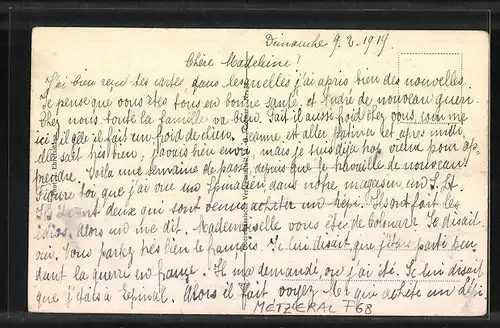 Dimanche 9.2.1919.
Chère Madeleine!
J'ai bien reçu tes cartes dans lesquelles j'ai apris bien des nouvelles.
Je pense que vous êtes tous en bonne santé, et André de nouveau guéri.
Chez nous toute la famille va bien. Fait il aussi froid chez vous, comme
ici, il gèle il fait un froid de chien. Jeanne, est aller patiner cet après midi,
elle sait très bien, j'avais bien envie, mais je suis déja trop vieux pour ap-
prendre. Voilà une semaine de passé, depuis que je travaille de nouveau.
Figure toi que j'ai vu dans notre magasin, un S. Lt
deux qui sont venu acheter un képi. Ils ont fait les
idiots. Alors un me dit. Mademoiselle vous êtes de Colmar? Je disait
oui. Vous parlez très bien le français. Je lui disait que j'étais parti pen-
dant la guerre en France. Il ma demandé, ou j'ai été. Je lui disait
que j'étais à Epinal. Alors il fait voyez Mr qui achète un képi
METZERAL F68